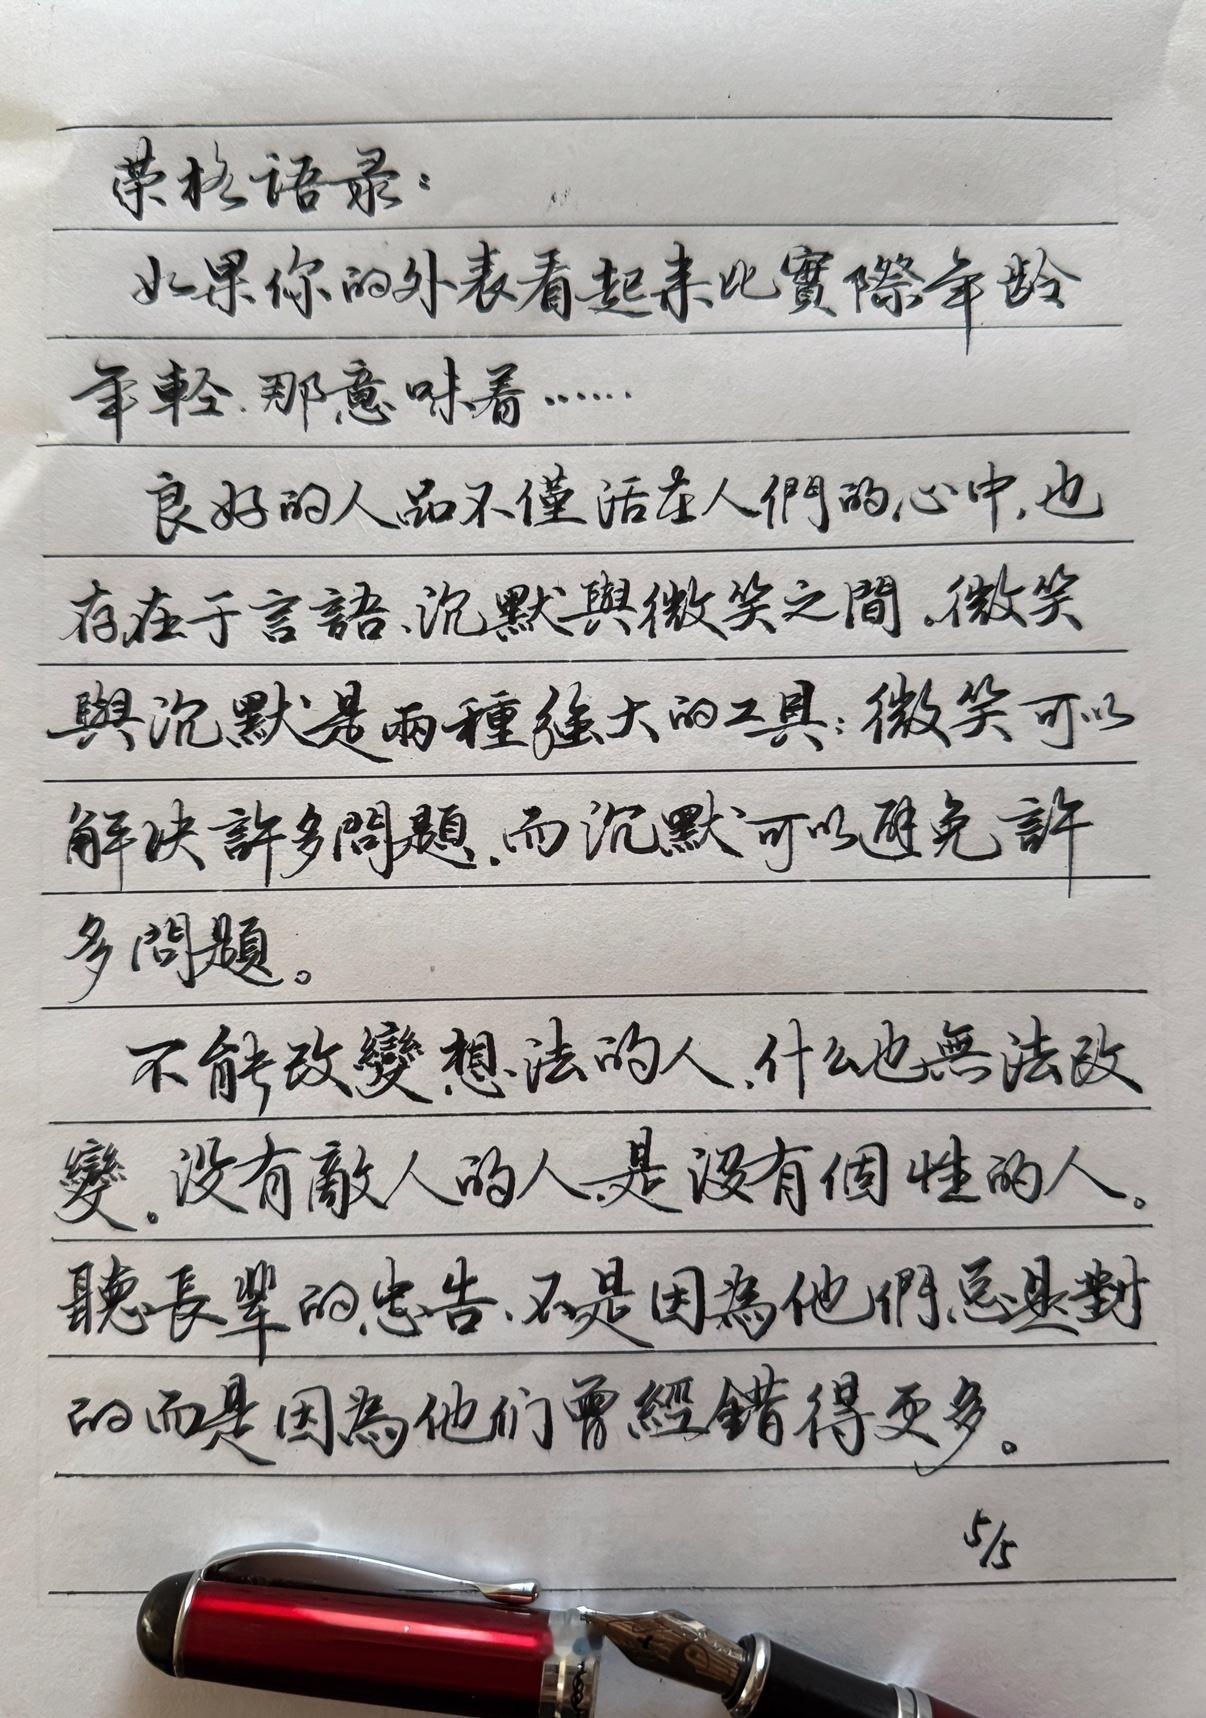 荣格语录：
如果你的外表看起来比實際年龄
年輕、那意味着……
良好的人品不僅活在人們的心中，也
存在于言語、沉默與微笑之間，微笑
與沉默是兩種強大的工具：微笑可以
解决許多問題，而沉默可以避免許
多問題。
不能改變想法的人，什么也無法改
變。没有敵人的人，是没有個性的人。
聽長輩的忠告、不是因為他們总是對
的而是因為他们曾經錯得更多。
5/5